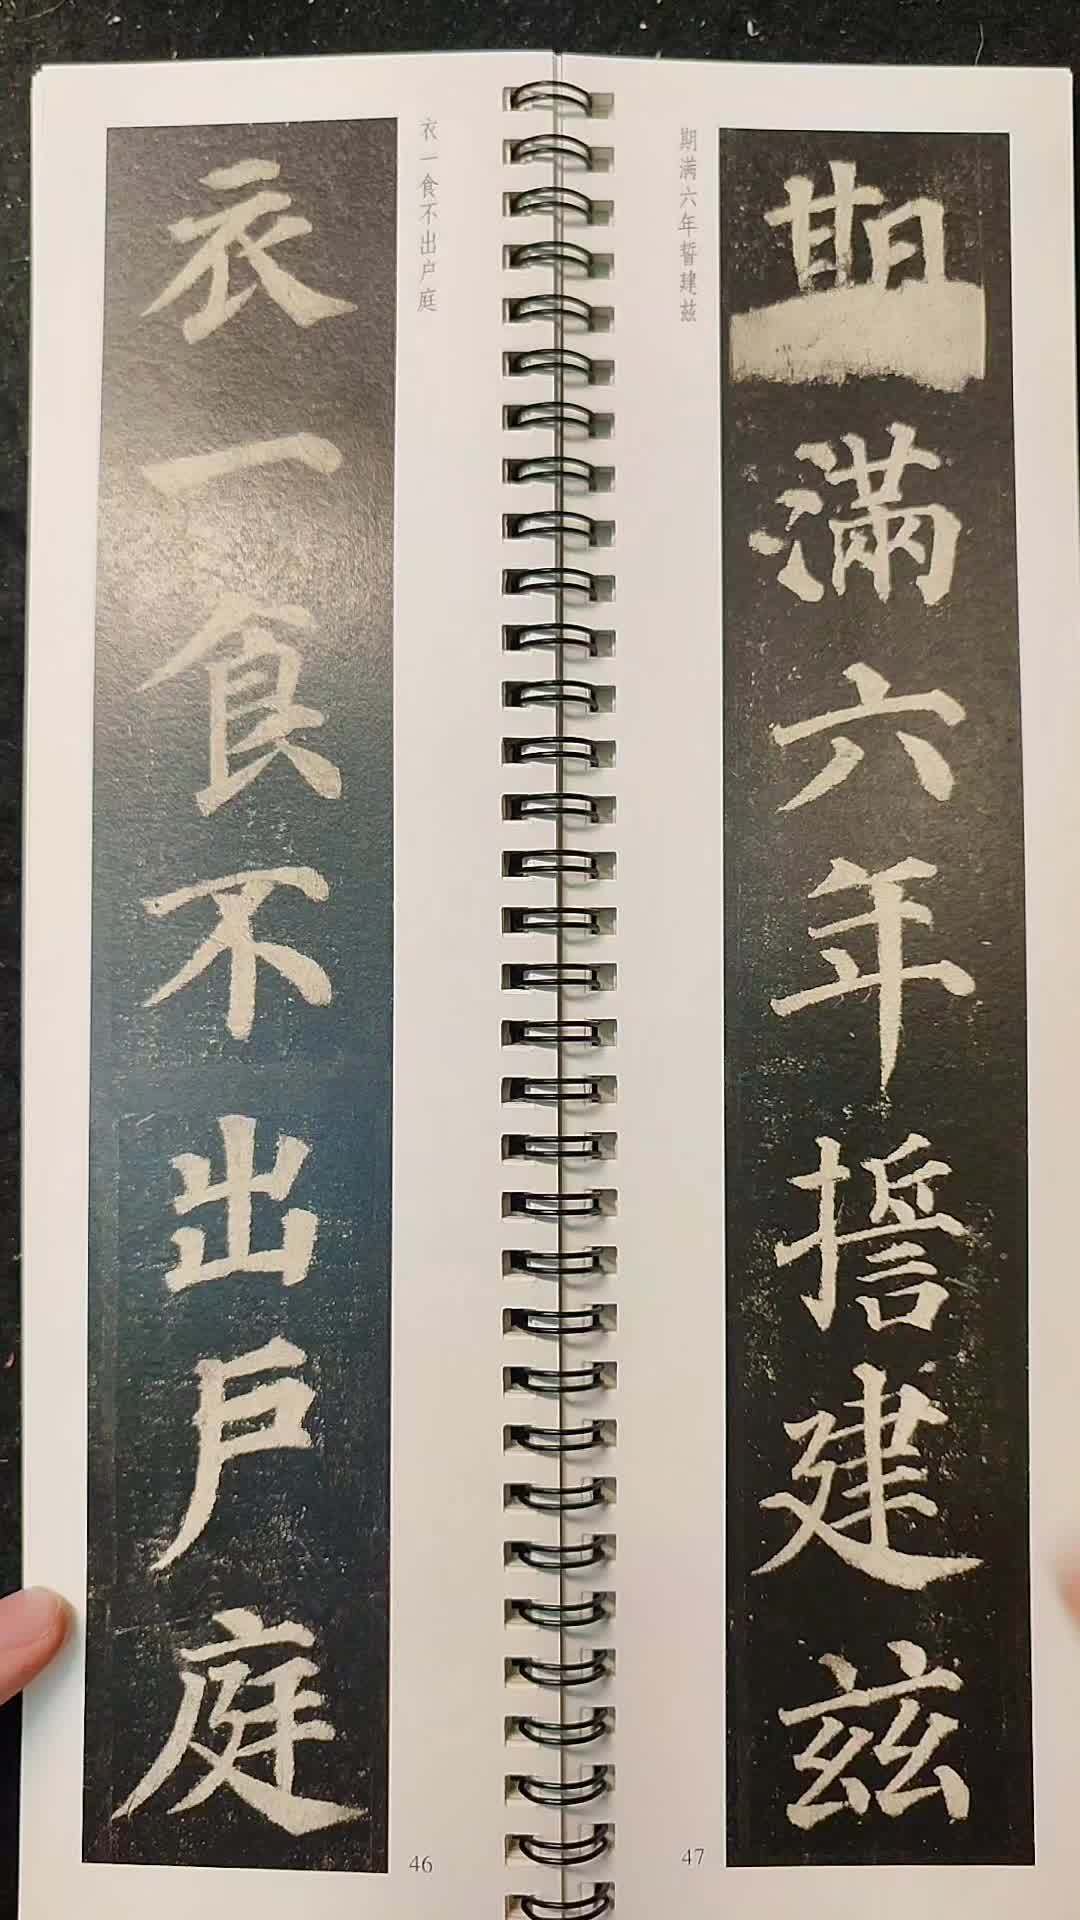 衣一食不出户庭
衣一食不出戶庭
46
期满六年誓建兹
期滿六年誓建茲
47